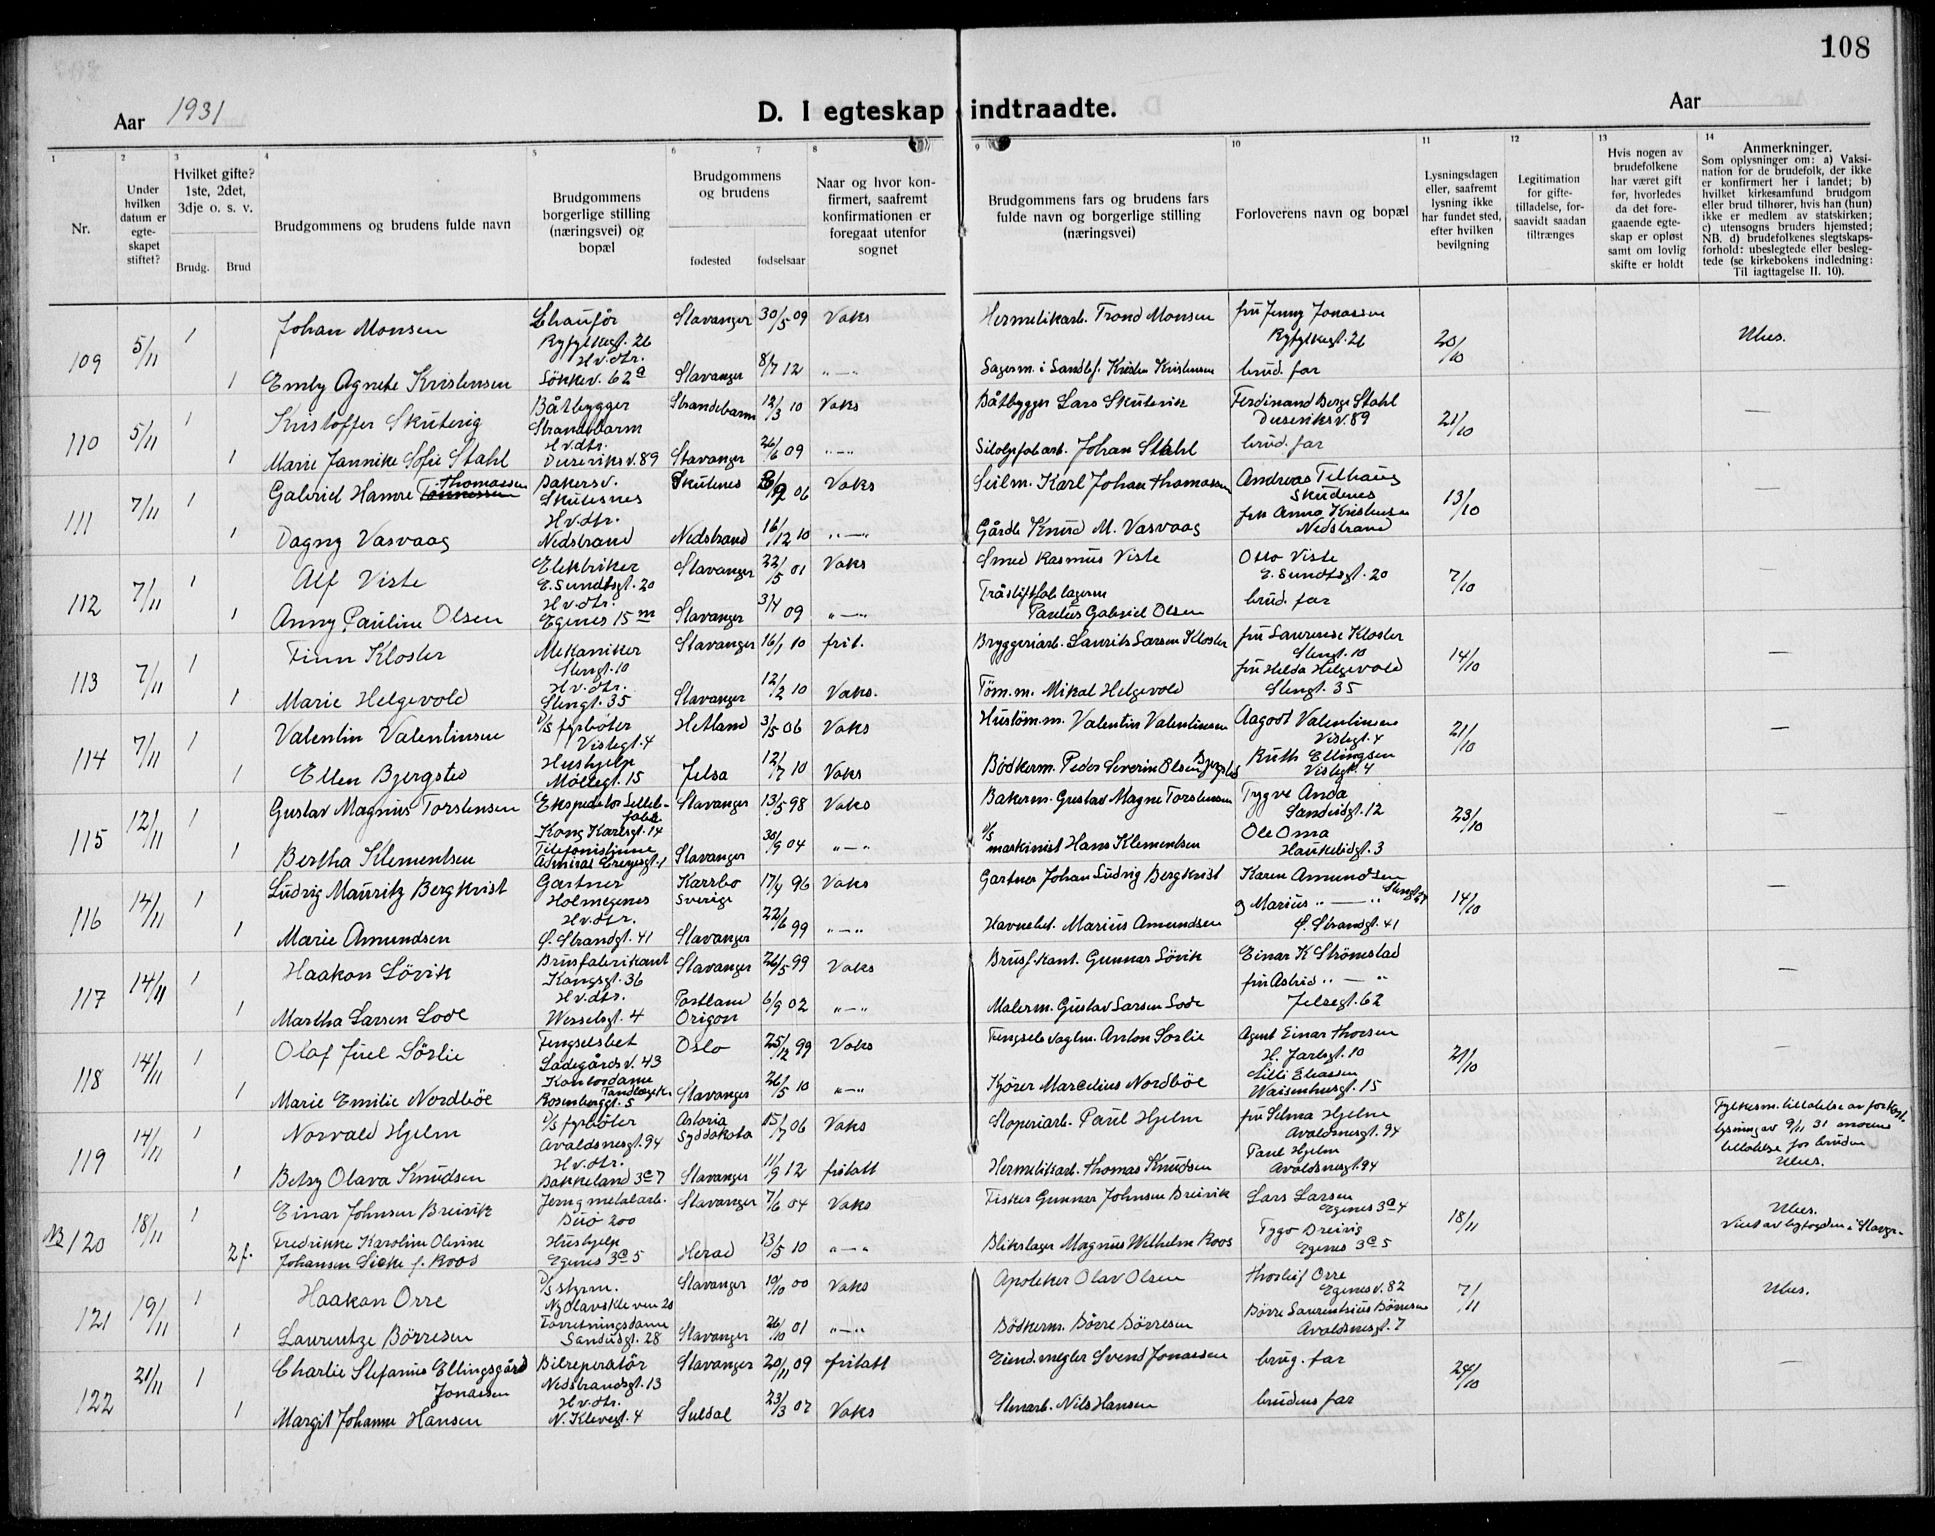 108
Aar 1931
D. I egteskap indtraadte.
Aar
1
2
3
4
5
6
7
8
9
10
11
12
13
14
Nr.
Under hvilken datum er egte-skapet stiftet?
Hvilket gifte? 1ste, 2det, 3dje o. s. v.
Brudg.
Brud
Brudgommens og brudens fulde navn
Brudgommens borgerlige stilling (næringsvei) og bopæl
Brudgommens og brudens
fødested
fødselsaar
Naar og hvor kon-firmert, saafremt konfirmationen er foregaat utenfor sognet
Brudgommens fars og brudens fars fulde navn og borgerlige stilling (næringsvei)
Forloverens navn og bopæl
Lysningsdagen eller, saafremt lysning ikke har fundet sted, efter hvilken bevilgning
Legitimation for gifte-tilladelse, for-saavidt saadan tiltrænges
Hvis nogen av brudefolkene har været gift før, hvorledes da det fore-gaaende egte-skap er opløst samt om lovlig skifte er holdt
Anmerkninger.
Som oplysninger om: a) Vaksi-nation for de brudefolk, der ikke er konfirmert her i landet; b) hvilket kirkesamfund brudgom eller brud tilhører, hvis han (hun) ikke er medlem av statskirken; c) utensogns bruders hjemsted; NB. d) brudefolkenes slegtskaps-forhold: ubeslegtede eller besleg-tede (se kirkebokens indledning: Til iagttagelse II. 10).
109 5/11 1 Johan Monsen Chauför Ryfylkegt. 26 Stavanger 30/5 09 Vaks Hermetikarb. Trond Monsen fru Jenny Jonassen Ryfylkegt. 26 20/10 Ubes.
1 Emly Agnete Kristensen H.v.dtr. Sökkev. 62a Stavanger 8/7 12 "—" Sagerm. i Sandbf. Kristen Kristensen brud. far
110 5/11 1 Kristoffer Skutevig Båtbygger Strandebarm Strandebarm 12/3 10 Vaks Båtbygger Lars Skutevik Ferdinand Berge Stahl Duseviksv. 89 21/10 —
1 Marie Jannike Sofie Stahl H.v.dtr. Duseviksv. 89 Stavanger 26/6 09 "—" Johan Stahl brud. far
111 7/11 1 Gabriel Hamre Thomassen Bakersv. Skutesnes Skutenes 06 Vaks Seilm. Karl Johan Thomassen Andreas Skudenes 13/10 —
1 Dagny Vasvaag H.v.dtr. Nedstrand Nedstrand 16/12 10 "—" Gårdb Knud M. Vasvaag fru Anna Kristensen Nedstrand
112 7/11 1 Alf Viste Elektriker E. Sundtsgt. 20 Stavanger 22/5 01 Vaks Smed Rasmus Viste Otto Viste E. Sundtsgt. 20 7/10 —
1 Anny Pauline Olsen H.v.dtr. Egenes 15 m Stavanger 3/4 09 "—" Paulus Gabriel Olsen brud. far
113 7/11 1 Finn Kloster Mekaniker Stengt. 10 Stavanger 16/1 10 frit. Bryggeriarb. Laurits Larsen Kloster fru Laurense Kloster Stengt. 10 14/10 —
1 Marie Helgevold H.v.dtr. Stengt. 35 Stavanger 12/2 10 Vaks. Töm.m. Mikal Helgevold fru Helda Helgevold Stengt. 35
114 7/11 1 Valentin Valentinsen D/S fyrböter Vistegt. 4 Hetland 3/5 06 Vaks Hustöm.m. Valentin Valentinsen Aagodt Valentinsen Vistegt. 4 21/10 —
1 Ellen Bjergsted Hushjelp Möllegt. 15 Jelsa 12/7 10 Vaks Bödkerm. Peder Severin Olsen Bjergsted Ruth Ellingsen Vistegt. 4
115 12/11 1 Gustav Magnus Torstensen Ekspeditör Kong Karlsgt. 14 Stavanger 13/5 98 Vaks Bakerm. Gustav Magne Torstensen Trygve Anda Sandvidgt. 12 23/10 —
1 Bertha Klementsen Telefonistinne Admiral Stavanger 30/9 04 "—" D/S maskinist Hans Klementsen Ole Oma Haukelidgt. 3
116 14/11 1 Ludvig Mauritz Bergkvist Gartner Holmegenes Karrbo Sverige 17/4 96 Vaks Gartner Johan Ludvig Bergkvist Karen Amundsen Stengt. 14/10 —
1 Marie Amundsen H.v.dtr. Ö. Strandgt. 41 Stavanger 22/6 99 "—" Havnebet. Marius Amundsen g Marius "—" Ö. Strandgt. 41
117 14/11 1 Haakon Lövik Brusfabrikant Kongsgt. 36 Stavanger 26/5 99 Vaks Brusf.kant. Gunnar Lövik Einar K Strömstad —
1 Martha Larsen Lode H.v.dtr. Wesselsgt. 4 Portland Origon 6/9 02 "—" Malerm. Gustav Larsen Lode fru Astrid "—" Jelsegt. 62
118 14/11 1 Olaf Juel Sörlie Fengselsbet Ladegårdsv. 43 Oslo 25/12 99 Vaks Fengselsvagtm. Anton Sorlie Agent Einar Thorsen H. Jarlsgt. 10 21/10 —
1 Marie Emilie Nordböe Kontordame Tandlægek. Rosenberggt. 5 Stavanger 26/5 10 "—" Kjörer Marcelius Nordböe Lilli Eliassen Waisenhusgt. 15
119 14/11 1 Norvald Hjelm D/S fyrböter Avaldsnesgt. 94 Astoria Syddakota 15/7 06 Vaks Stoperiarb. Paul Hjelm fru Selma Hjelm Avaldsnesgt. 94 Fylkesm. tillatelse av forkort. lysning av 9/11 31 tillatelse for bruden Ubes.
1 Betsy Olava Knudsen H.v.dtr. Bakkeland 3c 7 Stavanger 11/9 12 fritatt Hermetikarb. Thomas Knudsen Paul Hjelm Avaldsnesgt. 94
N2 120 18/11 1 Einar Johnsen Breivik Jern g metalarb. Buö 200 Stavanger 7/6 04 Vaks Fisker Gunnar Johnsen Breivik Lars Larsen Egenes 3a 4 18/11 Ubes. Viet av byfogden i Stavgr.
2 f. Fredrikke Karoline Olevine Johansen f. Roos Hushjelp Egenes 3c 5 Herad 13/5 10 "—" Blikslager Magnus Wilhelm Roos Tygo Breivig Egenes 3c 5
121 19/11 1 Haakon Orre D/S styrm. Nylavskleven 20 Stavanger 19/10 00 Vaks Apoteker Olav Olsen Thorleif Orre Egenesv. 82 7/11 Ubes.
1 Laurentze Börresen Forretningsdame Sandvigt. 28 Stavanger 26/10 01 "—" Bödkerm. Börre Börresen Börre Laurentsius Börresen Avaldsnesgt. 7
122 21/11 1 Charlie Stefanus Ellingsgård Jonassen Bilreperatör Nedstrandsgt. 13 Stavanger 20/11 09 fritatt Eiend.megler Svend Jonassen brug. far 24/10 —
1 Margit Johanne Hansen H.v.dtr. N. Klevegt. 4 Suldal 23/3 07 Vaks Stenarb. Nils Hansen brudens far